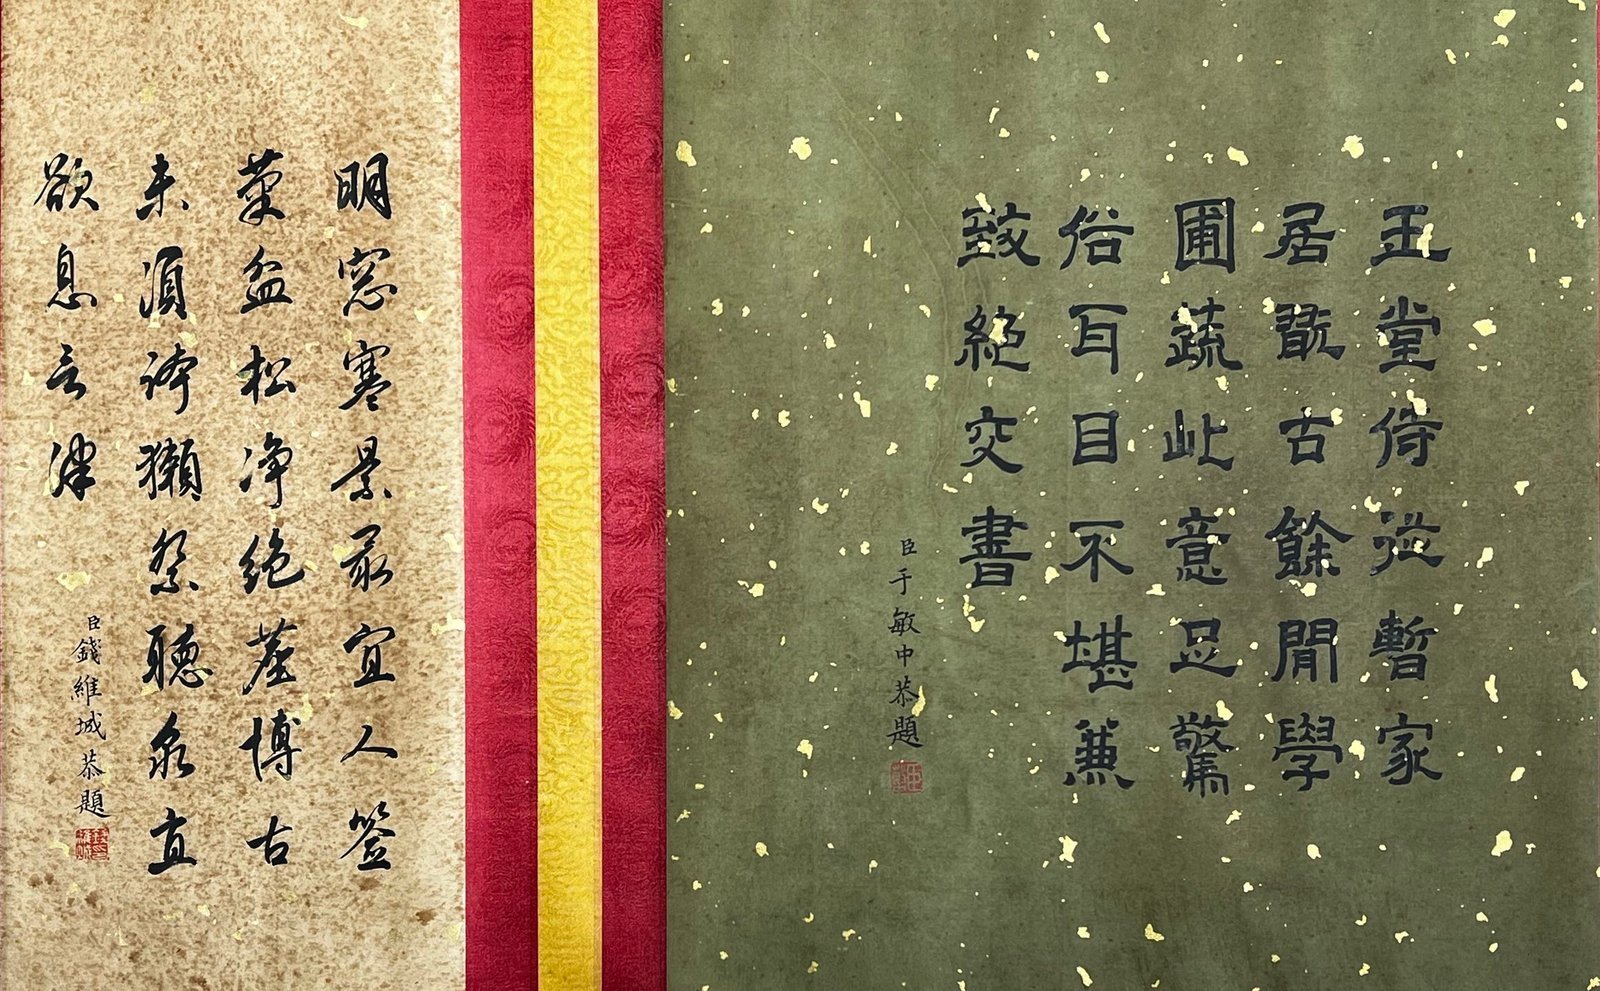 玉堂侍從暫家
居翫古餘閒學
圃蔬此意足驚
俗耳目不堪兼
致絕交書
臣于敏中恭題
明窓寒景最宜人签
菊盆松净絕塵博古
未須誇獺祭聽泉直
欲息言津
臣錢維城恭題